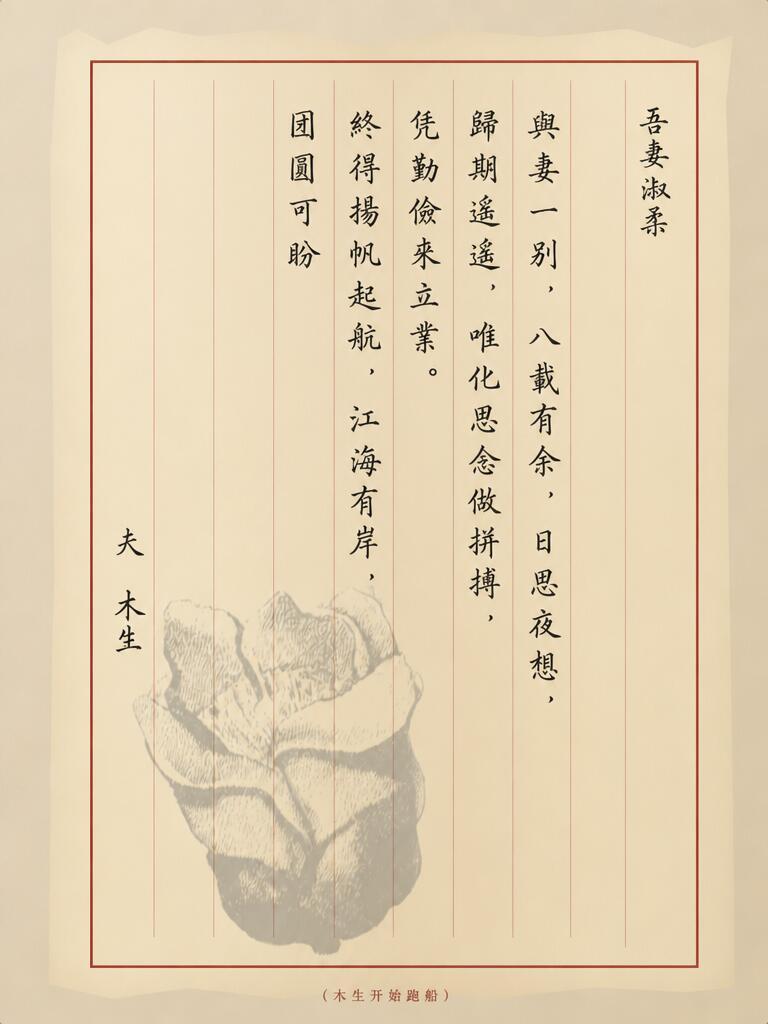 吾妻淑柔
與妻一别，八載有余，日思夜想，
歸期遥遥，唯化思念做拼搏，
凭勤儉來立業。
終得揚帆起航，江海有岸，
团圓可盼
夫 木生
（木生开始跑船）